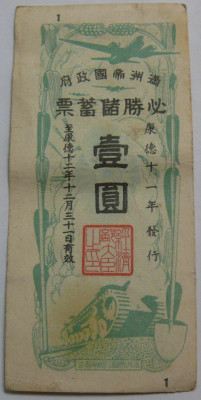 1
府政國帝洲滿
票蓄儲勝必
康德十一年發行
壹圓
至康德十二年十二月三十一日有效
經濟部大臣之印
1